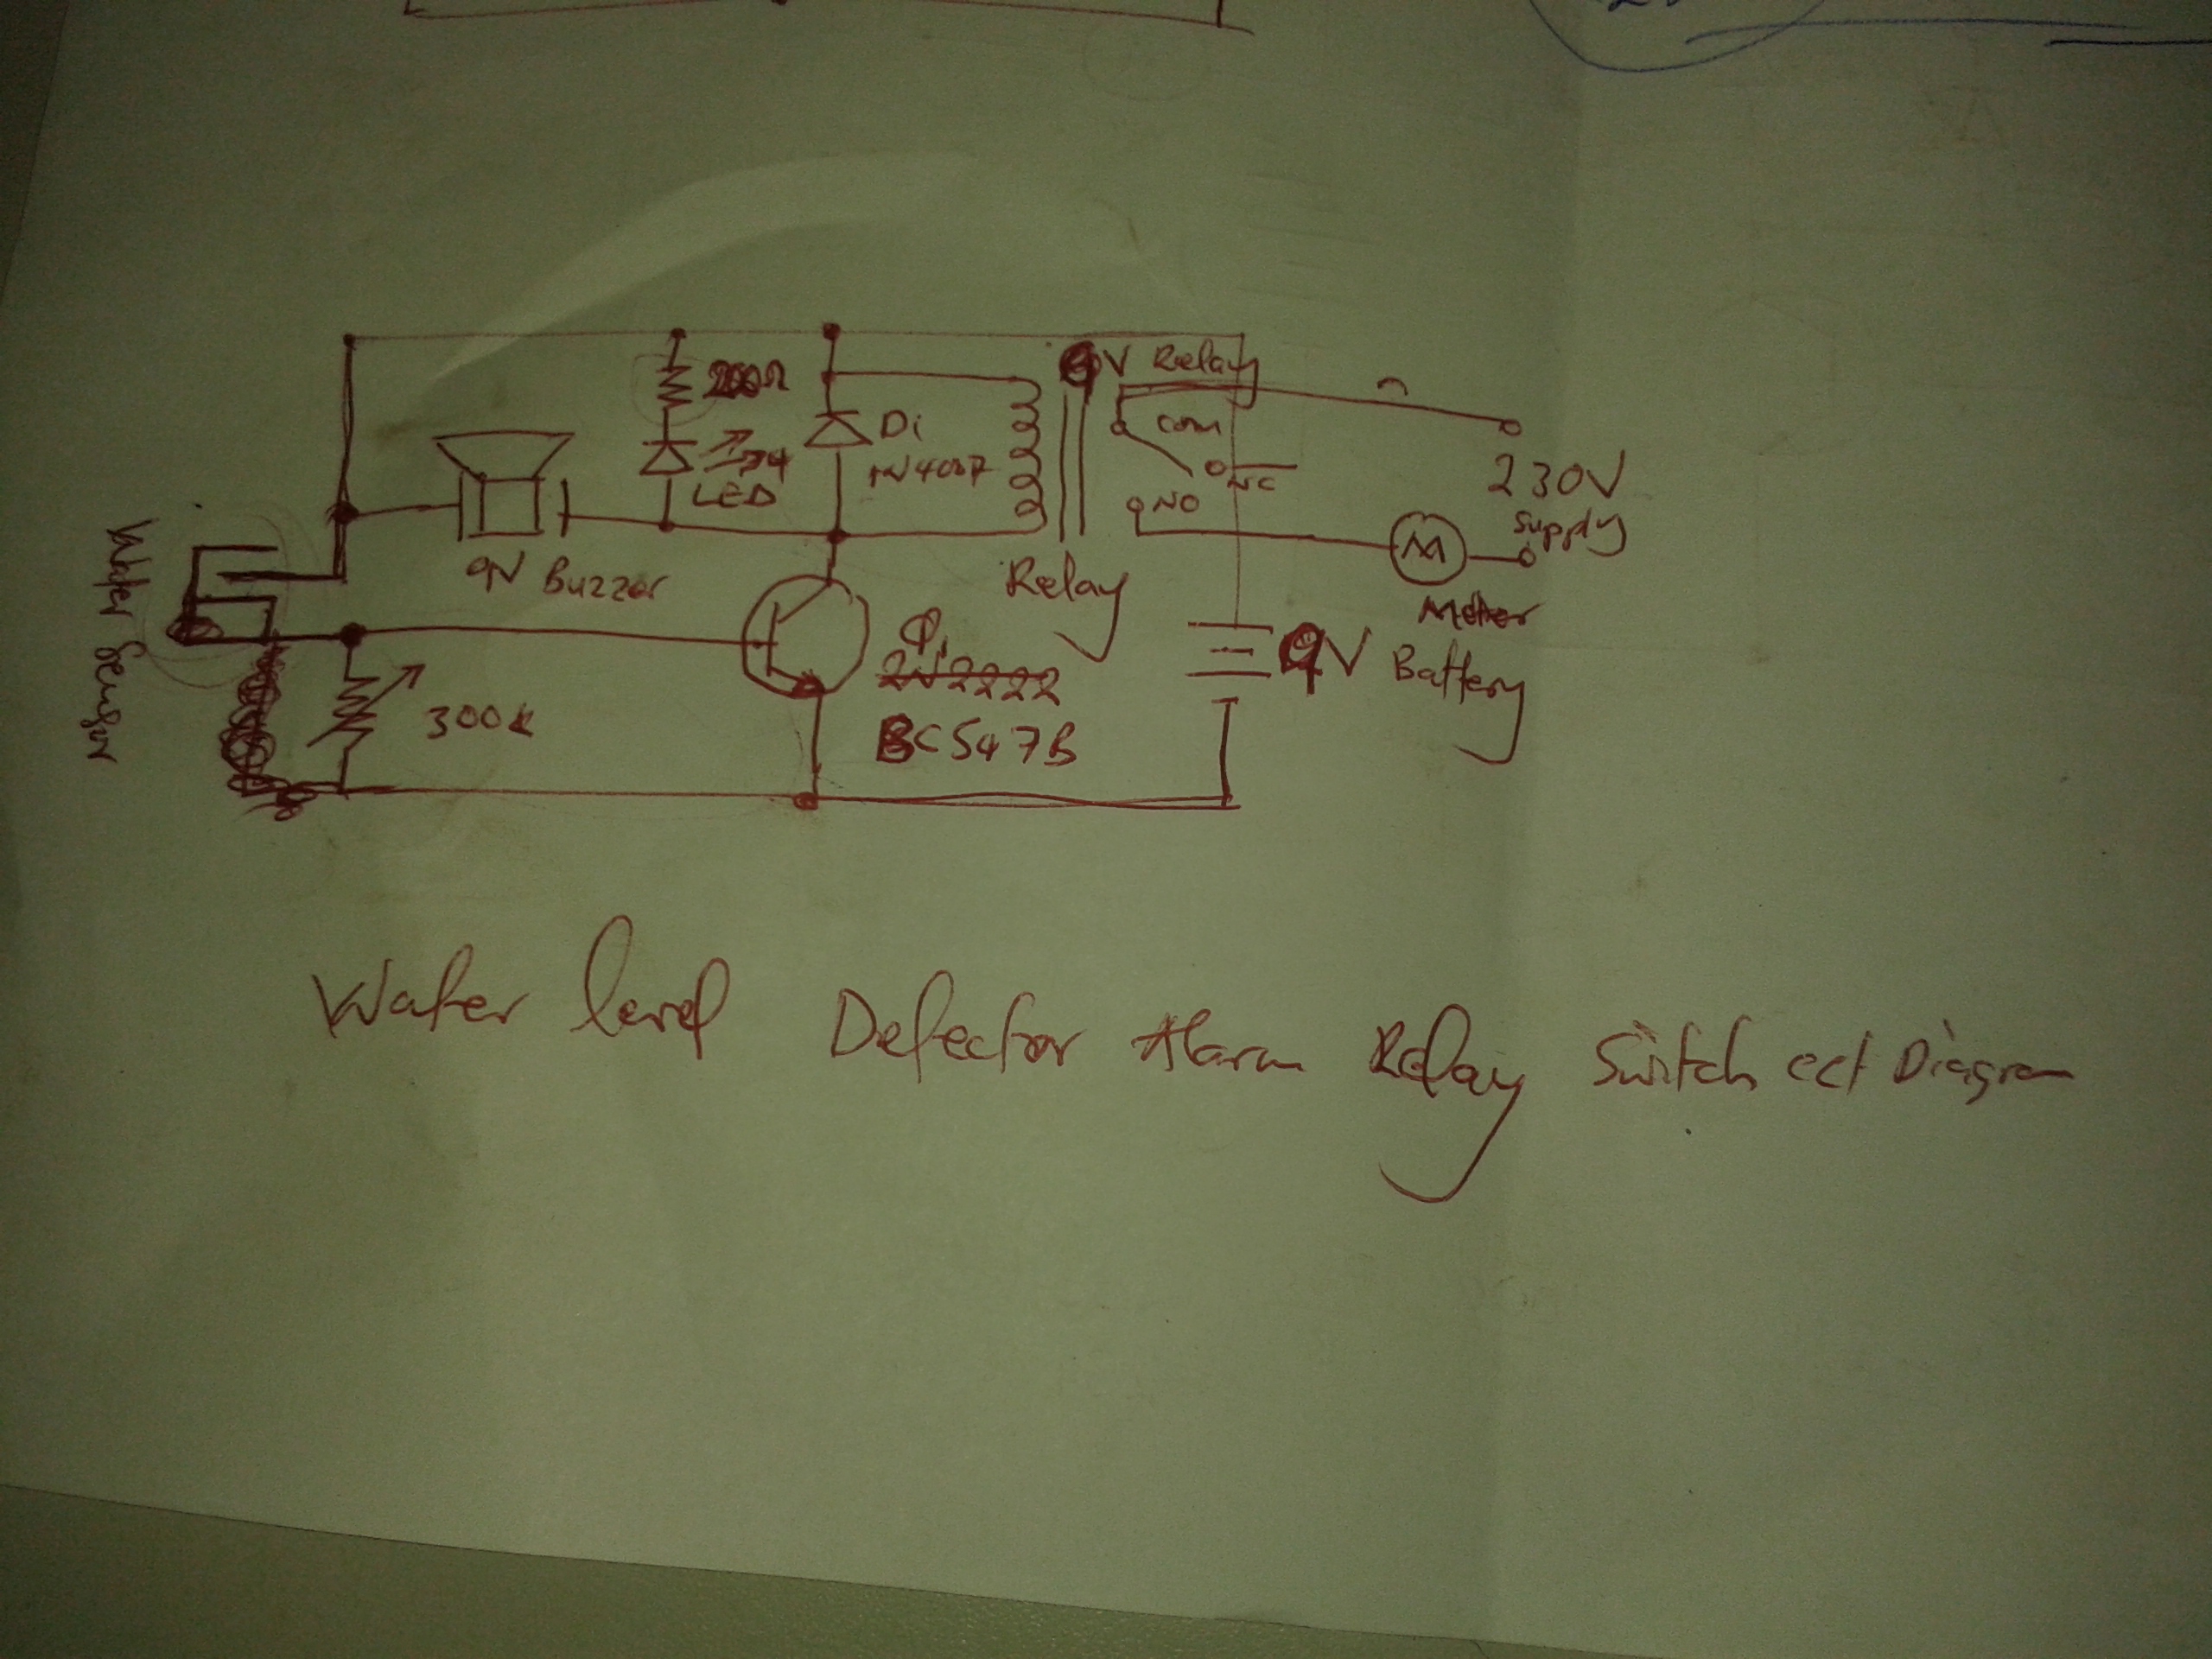 9V Relay
200Ω
COM
D1
1N4007
LED
NC
NO
230V
Supply
9V Buzzer
Relay
M
Water Sensor
Q1
2N2222
9V Battery
300K
BC547B
Water level Detector Alarm Relay Switch cct Diagram